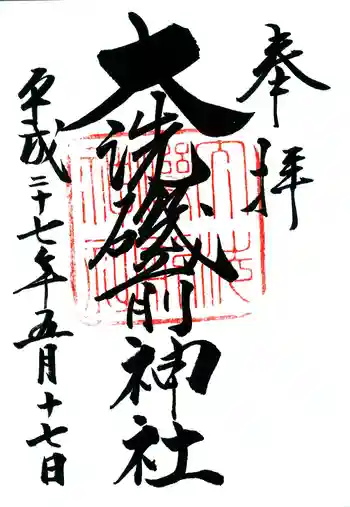 奉拝
大洗磯前神社
平成二十七年五月十七日